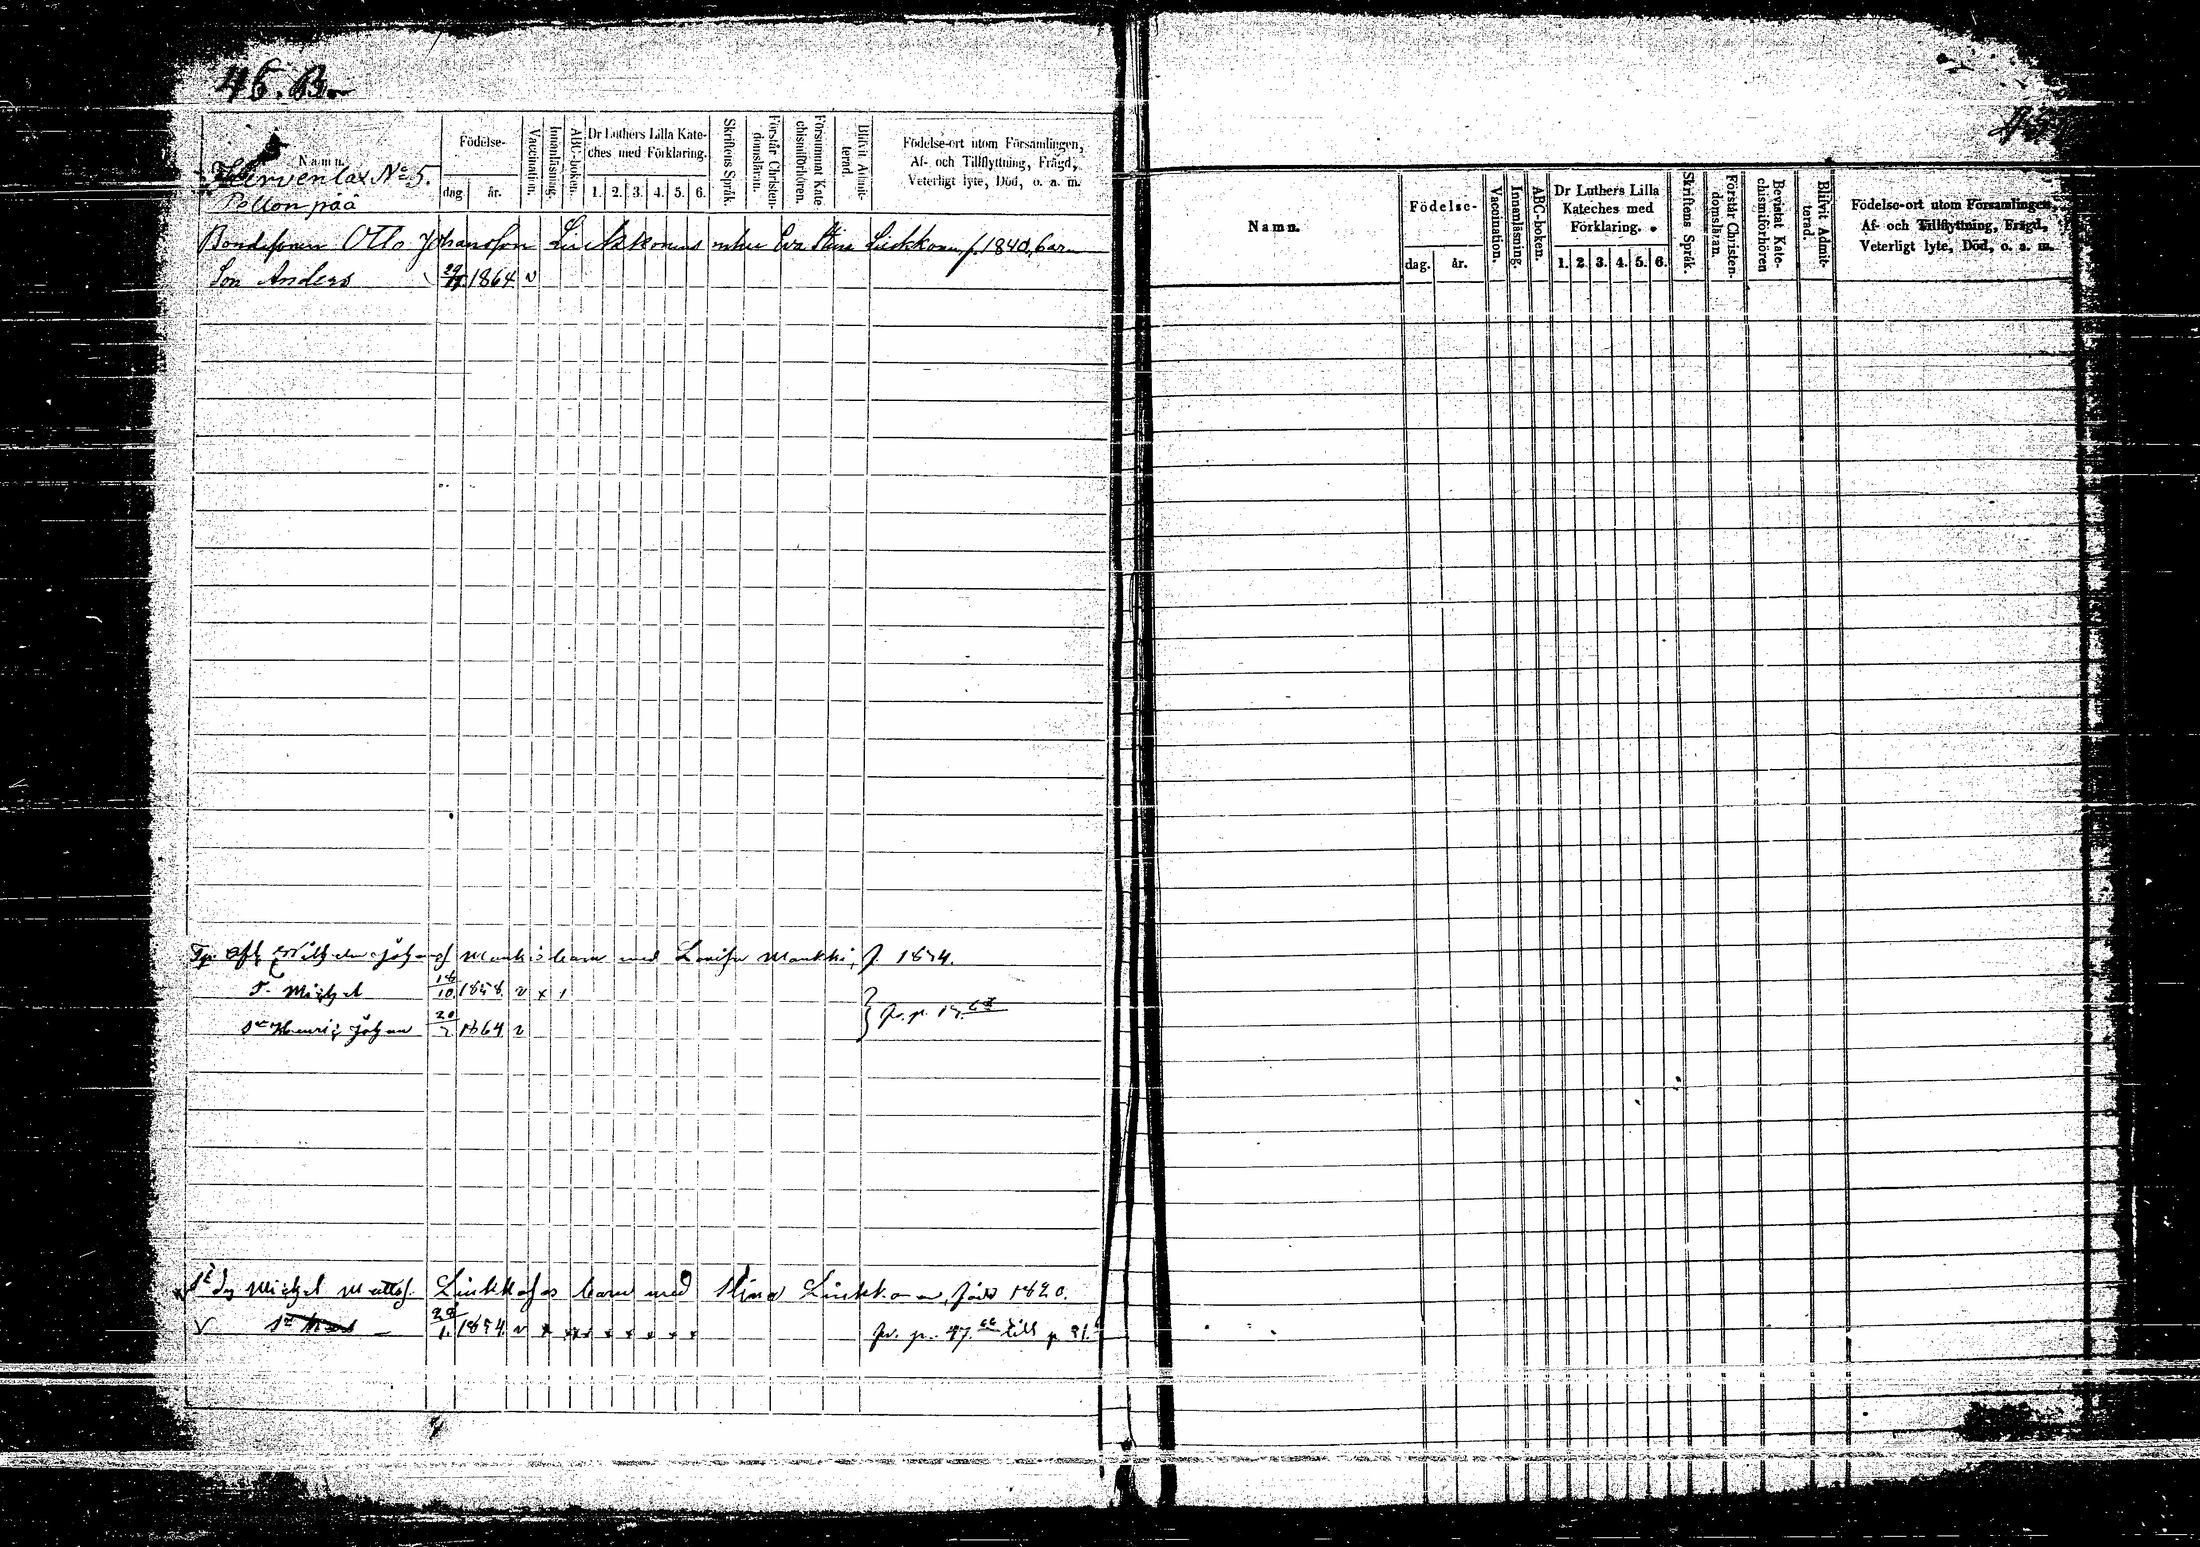 46. B.
Namn.
Hurvenlax No 5.
Pellonpää
Födelse-
dag.
år.
Vaccination.
Innanläsning.
ABC-boken.
Dr Luthers Lilla Kate-
ches med Förklaring.
1. 2. 3. 4. 5. 6.
Skriftens Språk.
Förstår Christen-
domsläran.
Försummat Kate
chismiförhören.
Blifvit Admit-
terad.
Födelse-ort utom Församlingen,
Af- och Tillflyttning, Frägd,
Veterligt lyte, Död, o. a. m.
Bondesonen Otto Johansson Liukkonens m hu Eva Stina Liukkonen f. 1840, barn
Son Anders 29/11 1864 v
Johan Mankis barn med Lovisa Mankki, f.
Michel 18/10 1858. v x 1
Henric Johan 20/2 1864 v
fr. p.
Michel Mattss. barn med Stina Liukkonen, född 1820.
1854. v x x x x x x x
fr. p. 47. till p
Namn.
Födelse-
dag.
år.
Vaccination.
Innanläsning.
ABC-boken.
Dr Luthers Lilla
Kateches med
Förklaring.
1. 2. 3. 4. 5. 6.
Skriftens Språk.
Förstår Christen-
domsläran.
Bevistat Kate-
chismiförhören
Blifvit Admit-
terad.
Födelse-ort utom Församlingen,
Af- och Tillflyttning, Frägd,
Veterligt lyte, Död, o. a. m.